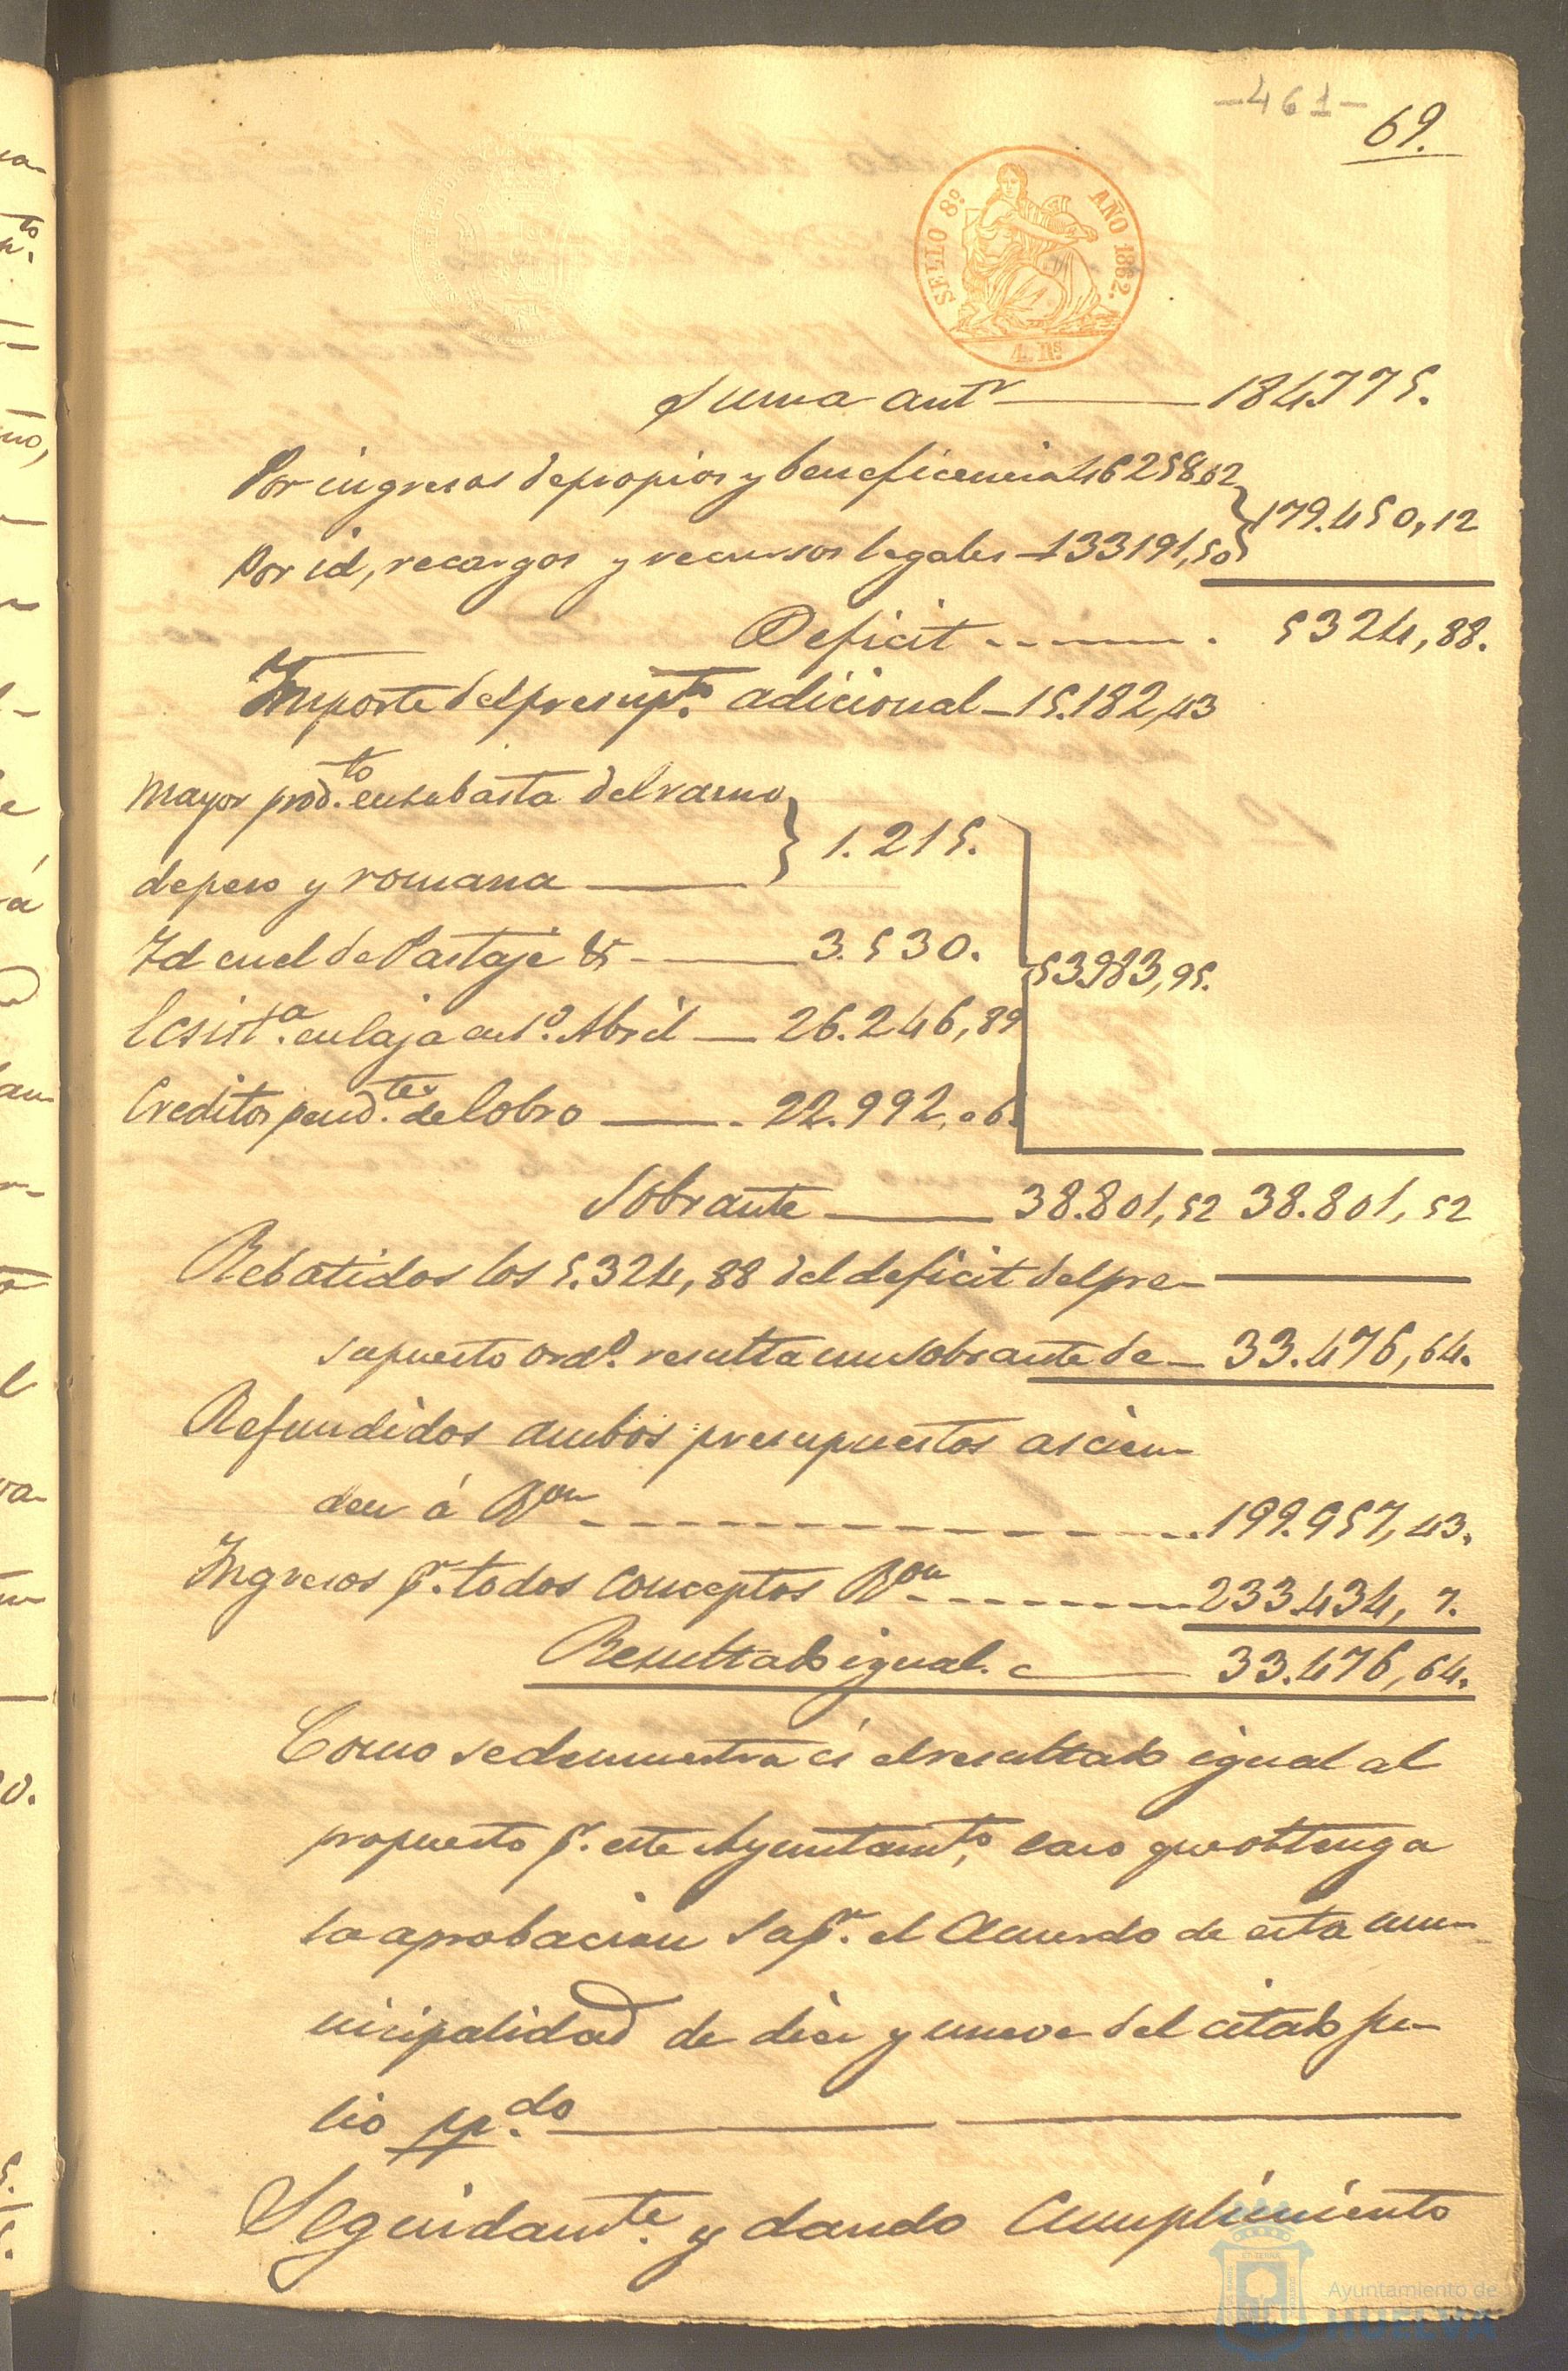 -461-
69.
SELLO 8º AÑO 1862.
4 Rs
Suma antr 184775.
Por ingresos de propios y beneficencia 46258,62
179.450,12
Por id, recargos y recursos legales 133191,50
Deficit 5324,88.
Importe del presupto. adicional 15.182,43
Mayor prodto. en subasta del ramo
1.215.
de peso y romana
Id en el de Partaje &
3.530.
53983,95.
Ecsista. en Caja en 1º. Abril 26.246,89
Creditos pendtes. de Cobro 22.992,06.
Sobrante 38.801,52 38.801,52
Rebatidos los 5.324,88 del deficit del pre-
supuesto ordo. resulta un sobrante de 33.476,64.
Refundidos ambos presupuestos ascien-
den á Ron 199.957,43.
Ingresos pr. todos conceptos Ron 233.434, 7.
Resultado igual. 33.476,64.
Como se demuestra és el resultado igual al
propuesto pr. este Ayuntamto, caso que obtenga
la aprobacion Sapr. el Acuerdo de esta mu-
nicipalidad de diez y nueve del citado Ju-
lio ppdo.
Seguidamte. y dando cumplimiento
Ayuntamiento de
HUELVA